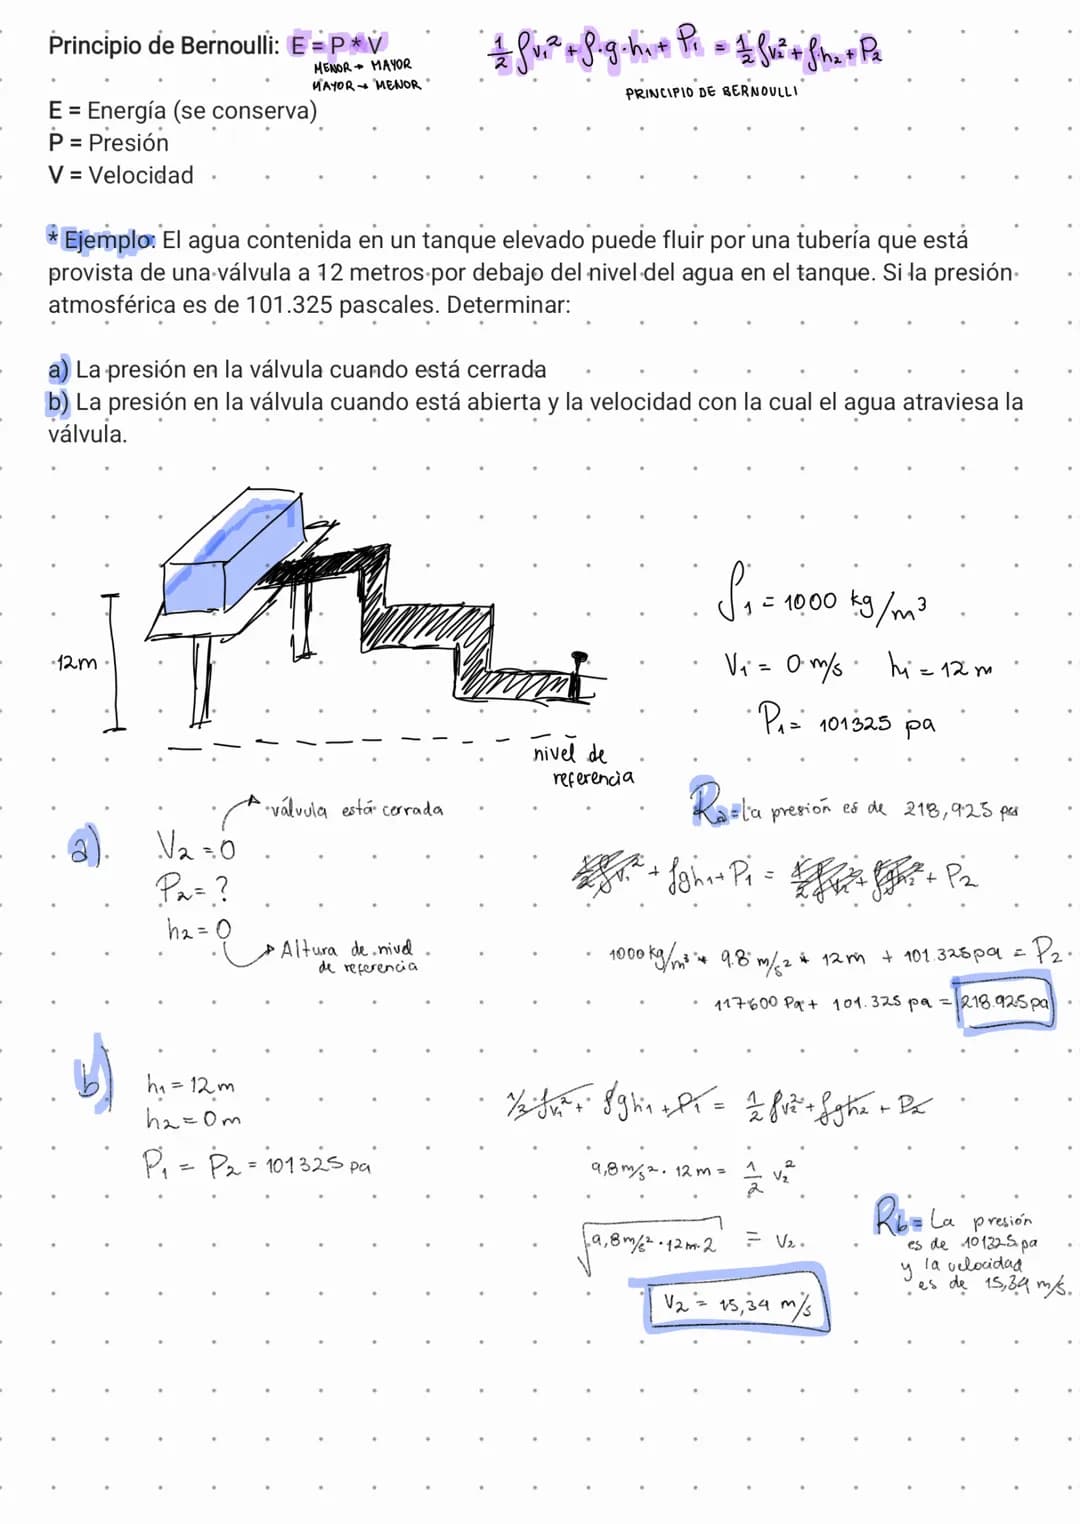 Principio de Bernoulli: E = P * V
MENOR → MAYOR
MAYOR → MENOR
½ρv₁² + ρ·g·h₁ + P₁ = ½ρv₂² + ρ·h₂ + P₂
PRINCIPIO DE BERNOULLI
E = Energía (se conserva)
P = Presión
V = Velocidad
* Ejemplo: El agua contenida en un tanque elevado puede fluir por una tubería que está
provista de una válvula a 12 metros por debajo del nivel del agua en el tanque. Si la presión
atmosférica es de 101.325 pascales. Determinar:
a) La presión en la válvula cuando está cerrada
b) La presión en la válvula cuando está abierta y la velocidad con la cual el agua atraviesa la
válvula.
12m
nivel de
referencia
ρ₁ = 1000 kg/m³
V₁ = 0 m/s h₁ = 12 m
P₁ = 101325 pa
a)
válvula está cerrada
V₂ = 0
P₂ = ?
h₂ = 0
Altura de nivel
de referencia
Ra = La presión es de 218,925 pa
½ρv₁² + ρgh₁ + P₁ = ½ρv₂² + ρgh₂ + P₂
1000 kg/m³ * 9.8 m/s² * 12m + 101.325pa = P₂
117600 Pa + 101.325 pa = 218.925pa
b)
h₁ = 12m
h₂ = 0m
P₁ = P₂ = 101325 pa
½ρv₁² + ρgh₁ + P₁ = ½ρv₂² + ρgh₂ + P₂
9,8 m/s² · 12m = ½ v₂²
√9,8 m/s² · 12m · 2 = V₂
V₂ = 15,34 m/s
Rb = La presión
es de 101325 pa
y la velocidad
es de 15,34 m/s.